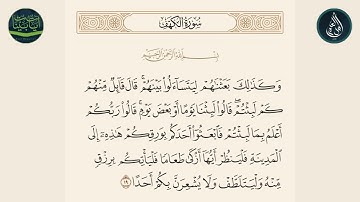 سُورَةُ الكَهْفِ
بِسْمِ اللَّهِ الرَّحْمَنِ الرَّحِيمِ
وَكَذَٰلِكَ بَعَثْنَٰهُمْ لِيَتَسَآءَلُوا۟ بَيْنَهُمْ ۚ قَالَ قَآئِلٌ مِّنْهُمْ
كَمْ لَبِثْتُمْ ۖ قَالُوا۟ لَبِثْنَا يَوْمًا أَوْ بَعْضَ يَوْمٍ ۚ قَالُوا۟ رَبُّكُمْ
أَعْلَمُ بِمَا لَبِثْتُمْ فَٱبْعَثُوٓا۟ أَحَدَكُم بِوَرِقِكُمْ هَٰذِهِۦٓ إِلَى
ٱلْمَدِينَةِ فَلْيَنظُرْ أَيُّهَآ أَزْكَىٰ طَعَامًا فَلْيَأْتِكُم بِرِزْقٍ
مِّنْهُ وَلْيَتَلَطَّفْ وَلَا يُشْعِرَنَّ بِكُمْ أَحَدًا ۝١٩